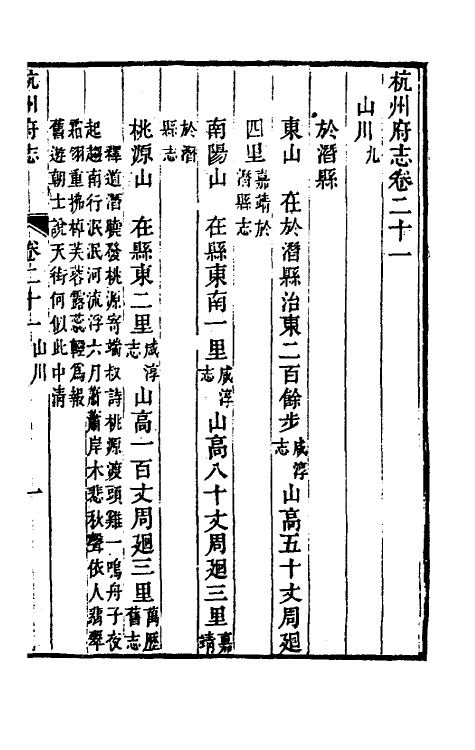 杭州府志卷二十一
山川九
於潛縣
東山　在於潛縣治東二百餘步咸淳志山高五十丈周廻
四里嘉靖於潛縣志
南陽山　在縣東南一里咸淳志山高八十丈周廻三里嘉靖
於潛縣志
桃源山　在縣東二里咸淳志山高一百丈周廻三里萬歷舊志
釋道潛曉發桃源寄端叔詩桃源渡頭雞一鳴舟子夜
起趨南行泯泯河流浮六月蕭蕭岸木悲秋聲依人翡翠
霜翎重拂棹芙蓉露蕊輕爲報
舊遊朝士說天街何似此中清
杭州府志
卷二十一　山川
一